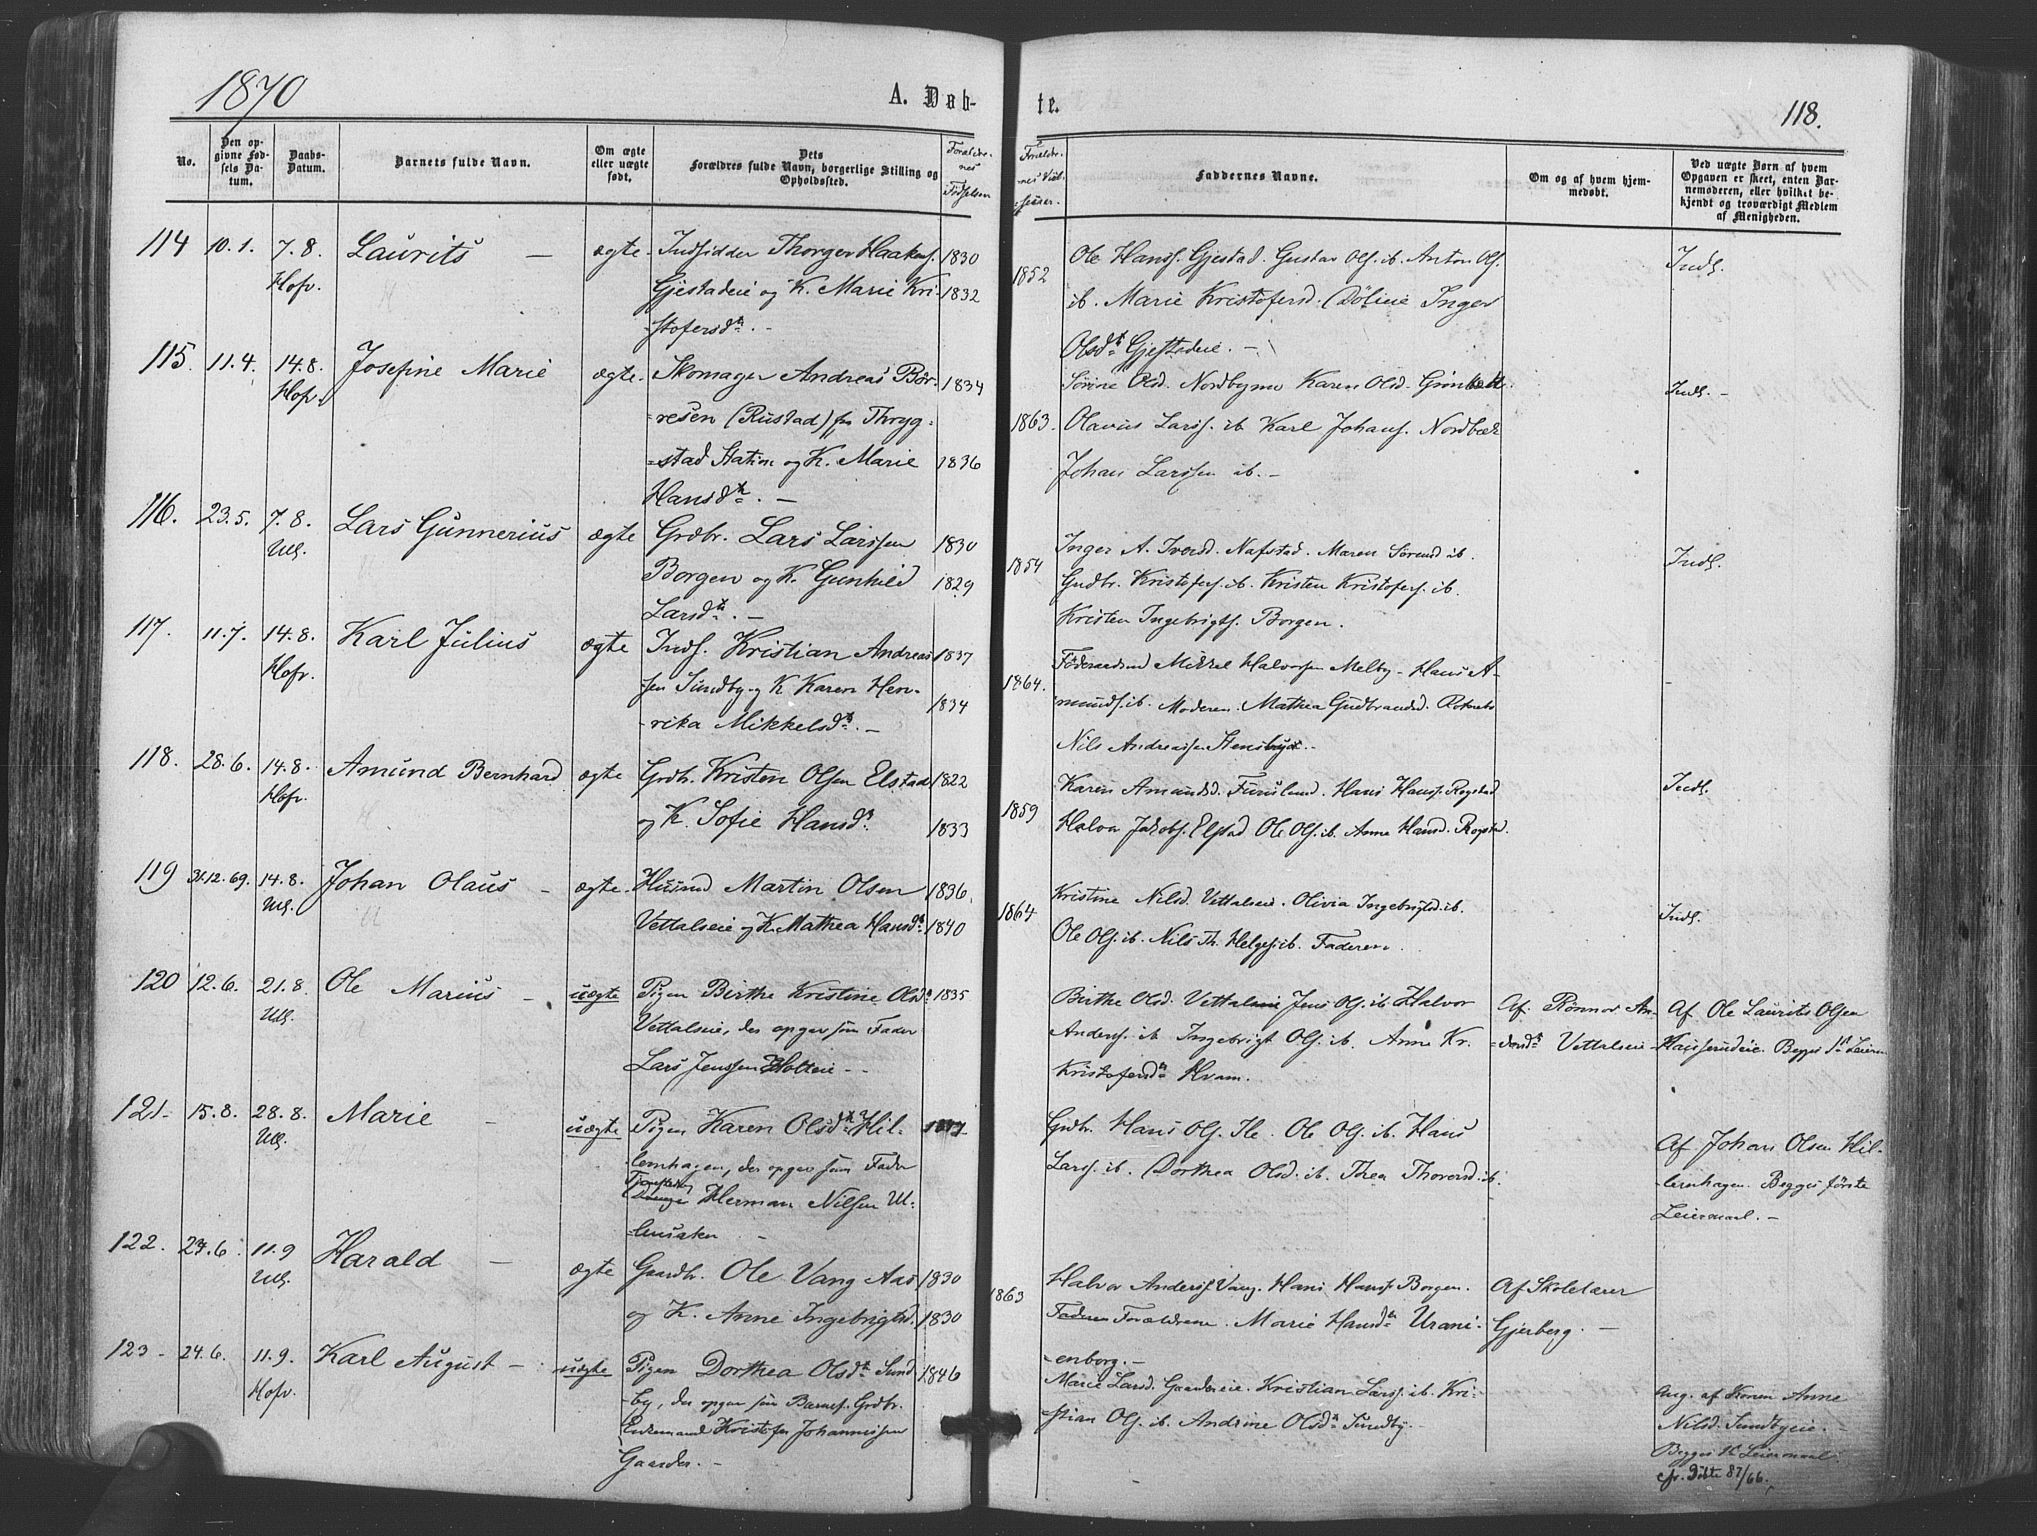 1870
A. Døb-
te.
118.
No.
Den op-
givne Fød-
sels Da-
tum.
Daabs-
Datum.
Barnets fulde Navn.
Om ægte
eller uægte
født.
Dets
Forældres fulde Navn, borgerlige Stilling og
Opholdssted.
Faddernes Navne.
Om og af hvem hjem-
medøbt.
Ved uægte Børn af hvem
Opgaven er skeet, enten Bar-
nemoderen, eller hvilket be-
kjendt og troværdigt Medlem
af Menigheden.
114 10.1. 7.8. Laurits — ægte Indsidder Thorger Haakens. 1830
Hofv. Gjestadeie og K. Marie Kri- 1832
stofersdtr. —
1852 Ole Hanss. Gjestad. Gustav Ols. ib. Anton Ols. Inds.
ib. Marie Kristofersd. Dölieie Inger
Olsdtr Gjestadeie. —
115. 11.4. 14.8. Josefine Marie ægte Skomager Andreas Bör- 1834
Hofv. =resen (Rustad) fra Thryg-
=stad Station og K. Marie 1836
Hansdtr. —
Sörine Olsd. Nordbymo Karen Olsd. Inds. —
1863. Olavus Larss. ib Karl Johans. Nordbæk
Johan Larssen ib. —
116. 23.5. 7.8. Lars Gunnerius ægte Grdbr. Lars Larssen 1830
Ull. Borgen og K. Gunhild 1829
Larsdtr. —
1854 Inger A. Iversd. Nafstad. Maren Sörensd ib. Inds.
Gudbr. Kristofers. ib. Kristen Kristofers. ib.
Kristen Ingebrigts. Borgen.
117. 11.7. 14.8. Karl Julius ægte Inds. Kristian Andreas 1837
Hofv. sen Sundby og K Karen Hen- 1834
-rika Mikkelsdtr. —
1864. Föderaadsmd Mikkel Halvorsen Melby - Hans A-
munds. ib. Moderen. Mathea Gudbrandsd.
Nils Andreassen Stensbye. —
118. 28.6. 14.8. Amund Bernhard ægte Grdbr. Kristen Olsen Elstad 1822
Hofv. og K. Sofie Hansdtr. 1833
1859 Karen Amundsd. Furulund. Hans Hanss. Rogstad Inds.
Halvor Jakobs. Elstad Ole Ols. ib. Anne Hansd. Rogstad.
119 31.12.69. 14.8. Johan Olaus — ægte. Husmd Martin Olsen 1836.
Ull. Vettalseie og K. Mathea Hansdtr 1840
1864 Kristine Nilsd. Vettalseie. Olivia Ingebrigtsd. ib. Inds.
Ole Ols. ib. Nils Th. Helges. ib. Faderen.
120 12.6. 21.8. Ole Marius — uægte Pigen Birthe Kristine Olsdtr 1835
Ull. Vettalseie, der opgav som Fader
Lars Jenssen Holteie —
Birthe Olsd. Vettalseie Jens Ols. ib Halvor
Anderss. ib Ingebrigt Ols. ib. Anne Kr.
Kristofersdtr Hvam.
Af Rönnov An-
=dersdtr Vettalseie
Af Ole Laurits Olsen
Hauserudeie. Begges 1ste Leierm
121- 15.8. 28.8. Marie — uægte Pigen Karen Olsdtr Hil-
Ull. lernhagen, der opgav som Fader
Herman Nilsen Ul-
lensaker —
Grdbr. Hans Ols. Ile. Ole Ols. ib. Hans
Larss. ib. Dorthea Olsd. ib. Thea Thorersd. ib.
Af Johan Olsen Hil-
lernhagen. Begges förste
Leiermaal. —
122. 11.9 Harald — ægte Gaardbr. Ole Vang Aas 1830
Ull. og K. Anne Ingebrigtsd. 1830
1863 Halvor Anderss. Vang. Hans Hanss. Borgen. Af Skolelærer
Forældrene. Marie Hansdtr Urani- Gjerberg. —
-enborg. —
123- 24.6. 11.9. Karl August — uægte Pigen Dorthea Olsdtr Sund- 1846
Hofv. -by, der opgav som Barnef. Grdbr.
Enkemand Kristofer Johannessen
Gaarder. —
Marie Larsd. Gaardereie. Kristian Larss. ib. Kri-
stian Ols. ib. Andrine Olsdtr Sundby. —
Ang. af Konen Anne
Nilsd. Sundbyeie. —
Begges 1ste Leiermaal.
cfr. Döbte 87/66.